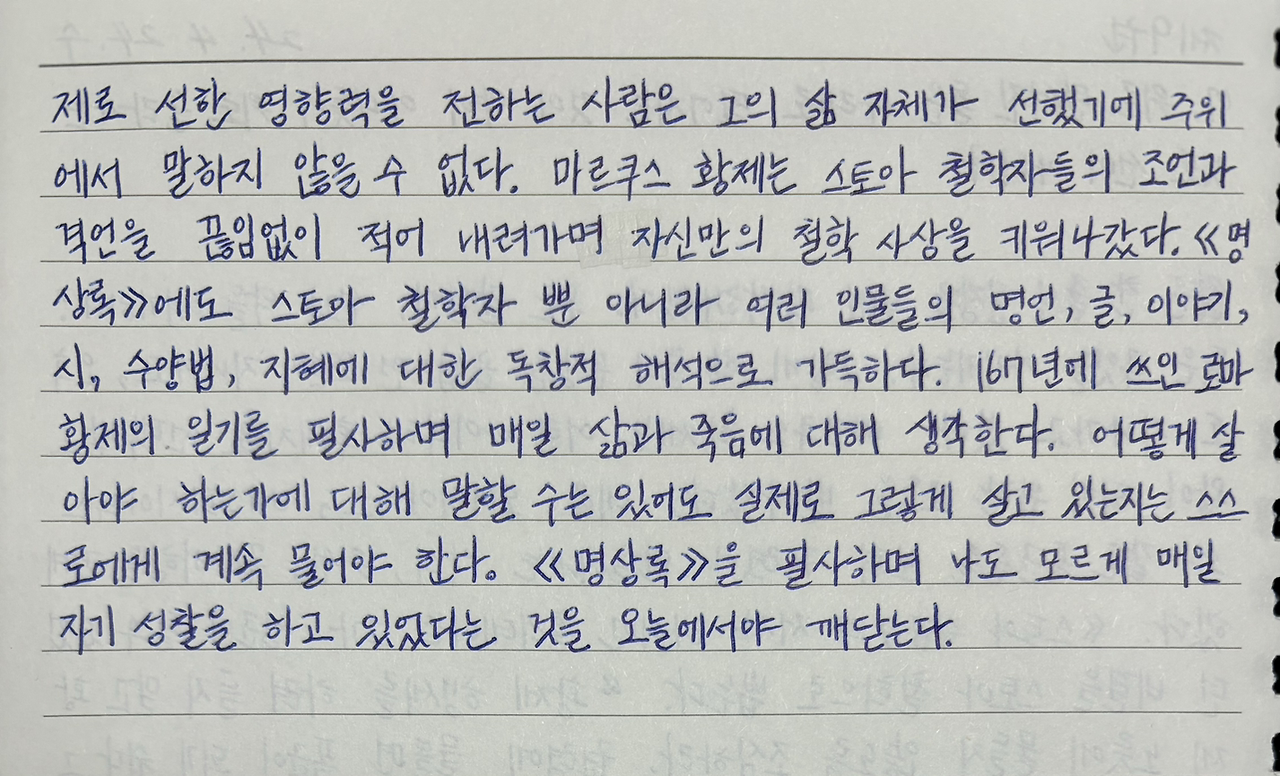 제로 선한 영향력을 전하는 사람은 그의 삶 자체가 선했기에 주위
에서 말하지 않을 수 없다. 마르쿠스 황제는 스토아 철학자들의 조언과
격언을 끊임없이 적어 내려가며 자신만의 철학 사상을 키워나갔다. 《명
상록》에도 스토아 철학자 뿐 아니라 여러 인물들의 명언, 글, 이야기,
시, 수양법, 지혜에 대한 독창적 해석으로 가득하다. 167년에 쓰인 로마
황제의 일기를 필사하며 매일 삶과 죽음에 대해 생각한다. 어떻게 살
아야 하는가에 대해 말할 수는 있어도 실제로 그렇게 살고 있는지는 스스
로에게 계속 물어야 한다. 《명상록》을 필사하며 나도 모르게 매일
자기 성찰을 하고 있었다는 것을 오늘에서야 깨닫는다.